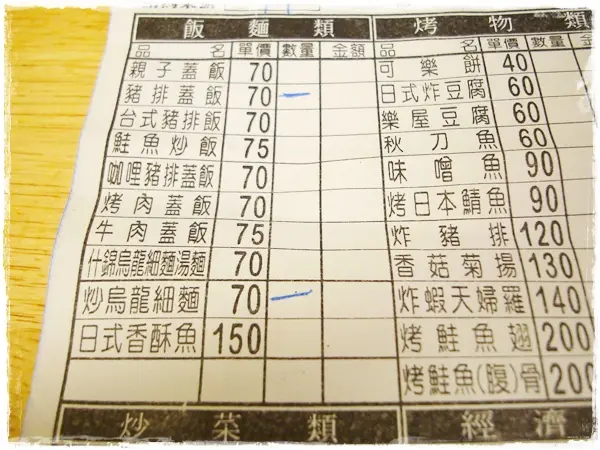 飯麵類
品名 單價 數量 金額
親子蓋飯 70
豬排蓋飯 70 一
台式豬排飯 70
鮭魚炒飯 75
咖哩豬排蓋飯 70
烤肉蓋飯 70
牛肉蓋飯 75
什錦烏龍細麵湯麵 70
炒烏龍細麵 70 一
日式香酥魚 150
炒菜類
烤物類
品名 單價 數量
可樂餅 40
日式炸豆腐 60
樂屋豆腐 60
秋刀魚 60
味噌魚 90
烤日本鯖魚 90
炸豬排 120
香菇菊揚 130
炸蝦天婦羅 140
烤鮭魚翅 200
烤鮭魚(腹)骨 200
經濟